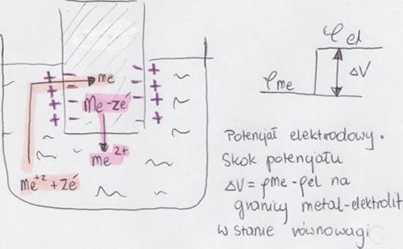 φel
φme
ΔV
me
Me-zé
me²⁺
Me⁺² + zé
Potencjał elektrodowy.
Skok potencjału
ΔV = φme - φel na
granicy metal-elektrolit
w stanie równowagi